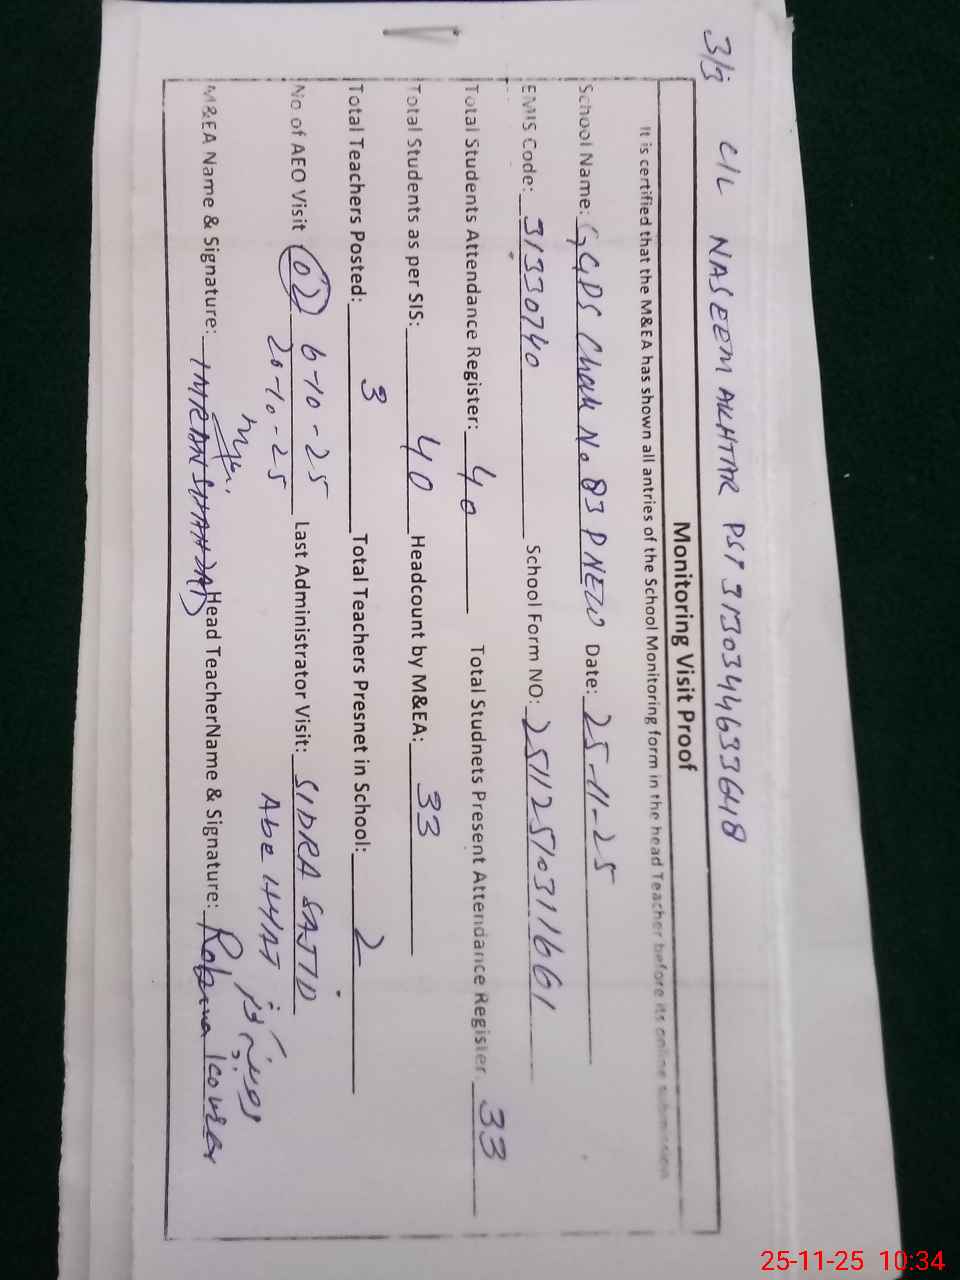 3/3 C/L NASEEM AKHTAR PST 3130344633648
Monitoring Visit Proof
It is certified that the M&EA has shown all antries of the School Monitoring form in the head Teacher before its online submission
School Name: GGPS Chak No 83 P NEW Date: 25-11-25
EMIS Code: 31330740 School Form NO: 2511251031 1661
Total Students Attendance Register: 40 Total Studnets Present Attendance Register: 33
Total Students as per SIS: 40 Headcount by M&EA: 33
Total Teachers Posted: 3 Total Teachers Presnet in School: 2
No. of AEO Visit 02 6-10-25 Last Administrator Visit: SIDRA SAJID
20-10-25 Abe HYAT
M&EA Name & Signature: IMRAN SHAHZAD Head TeacherName & Signature: Robina Kouser
25-11-25 10:34